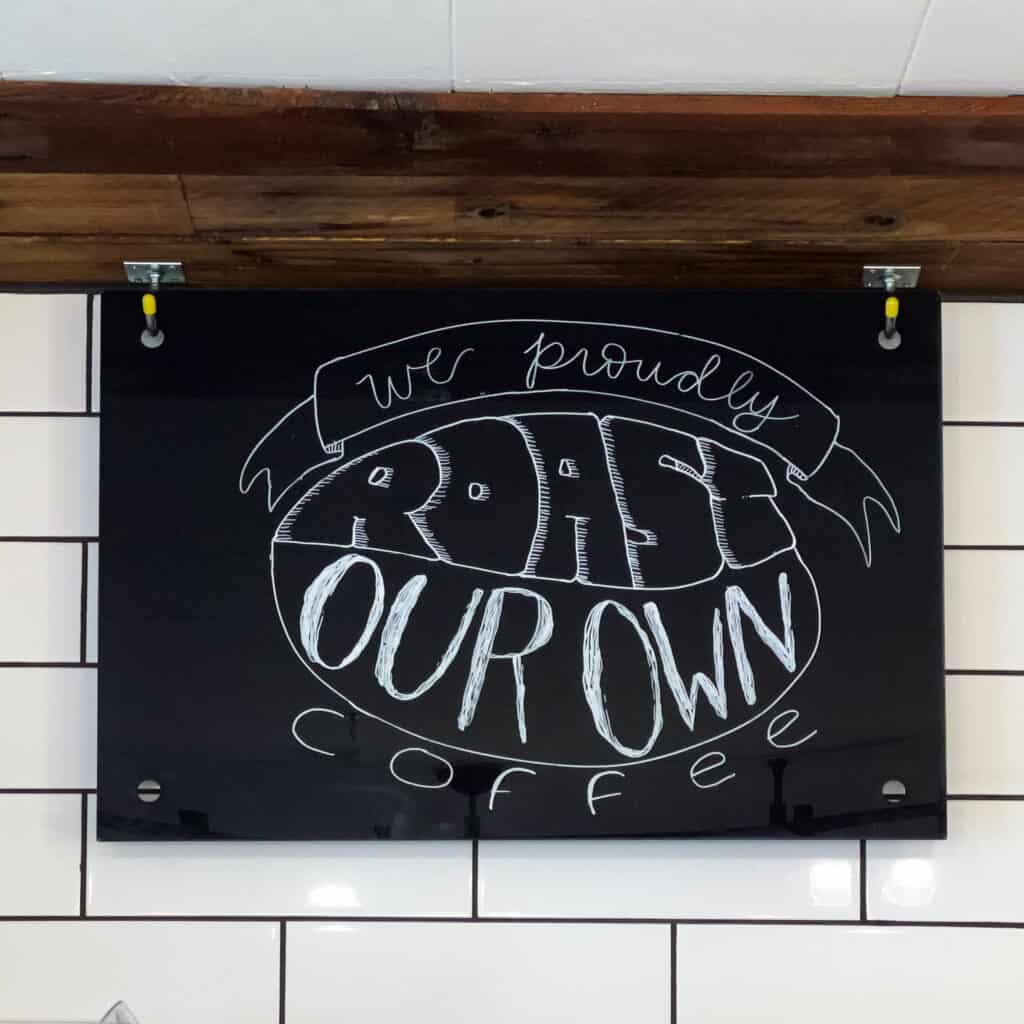 we proudly
ROAST
OUR OWN
COFFEE